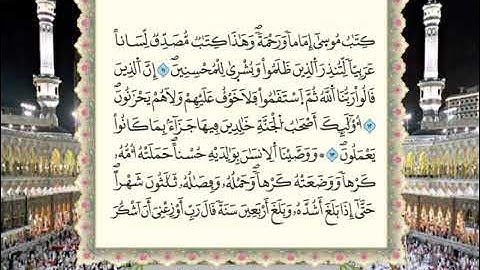 كِتَٰبُ مُوسَىٰ إِمَاماً وَرَحْمَةًۖ وَهَٰذَا كِتَٰبٌ مُّصَدِّقٌ لِّسَاناً
عَرَبِيّاً لِّتُنذِرَ اَ۬لذِينَ ظَلَمُواْ وَبُشْرَىٰ لِلْمُحْسِنِينَۖ ١١ إِنَّ اَ۬لذِينَ
قَالُواْ رَبُّنَا اَ۬للَّهُ ثُمَّ اَ۪سْتَقَٰمُواْ فَلَا خَوْفٌ عَلَيْهِمْ وَلَا هُمْ يَحْزَنُونَۖ ١٢
أُوْلَٰٓئِكَ أَصْحَٰبُ اُ۬لْجَنَّةِ خَٰلِدِينَ فِيهَا جَزَآءَۢ بِمَا كَانُواْ
يَعْمَلُونَۖ ١٣ وَوَصَّيْنَا اَ۬لِانسَٰنَ بِوَٰلِدَيْهِ حُسْناً حَمَلَتْهُ أُمُّهُۥ
كَرْهاً وَوَضَعَتْهُ كَرْهاًۖ وَحَمْلُهُۥ وَفِصَٰلُهُۥ ثَلَٰثُونَ شَهْراًۖ
حَتَّىٰٓ إِذَا بَلَغَ أَشُدَّهُۥ وَبَلَغَ أَرْبَعِينَ سَنَةً قَالَ رَبِّ أَوْزِعْنِيَ أَنَ اَشْكُرَ